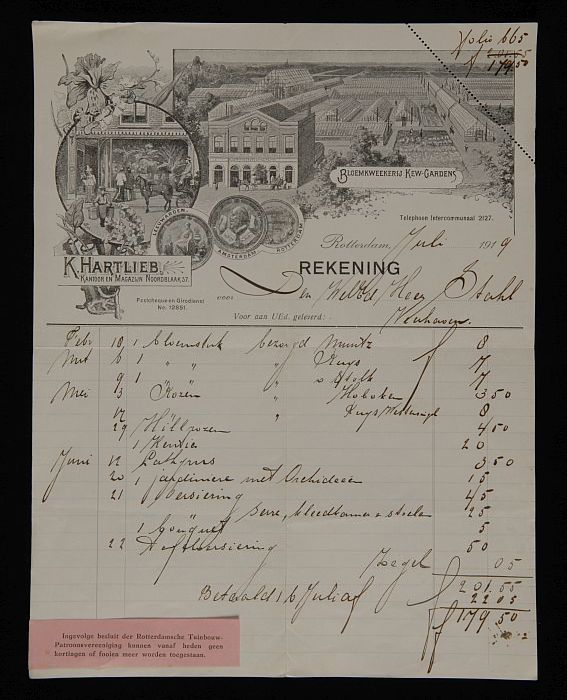 folio 665
201.55
179 50
BLOEMKWEEKERIJ KEW-GARDENS
LEEUWARDEN.
AMSTERDAM
ROTTERDAM
Telephoon Intercommunaal 2127.
Rotterdam, Juli 1919
K. HARTLIEB.
KANTOOR EN MAGAZIJN NOORDBLAAK 57.
REKENING
Postcheque en Girodienst
No. 12851.
voor Den WelEd Heer Stahl
Voor aan UEd. geleverd:
Febr 10 1 bloemstuk bezorgd Muntz 8
Mrt 6 1 " " " Kuys 7
9 1 " " " 7
Mei 3 Rozen " Hoboken 3 50
12 " Kuys 8
29 Hillrozen 4 50
1 Kentia 20
Juni 12 Lathyrus 3 50
20 1 jardiniere met Orchideeën 15
21 Versiering 45
serre, kleedkamer + stoelen 25
1 Bouquet 5
22 Tafelversiering 50
Zegel 05
f 201.55
22 05
f 179 50
Betaald 16 Juli
Ingevolge besluit der Rotterdamsche Tuinbouw-
Patroonsvereeniging kunnen vanaf heden geen
kortingen of fooien meer worden toegestaan.